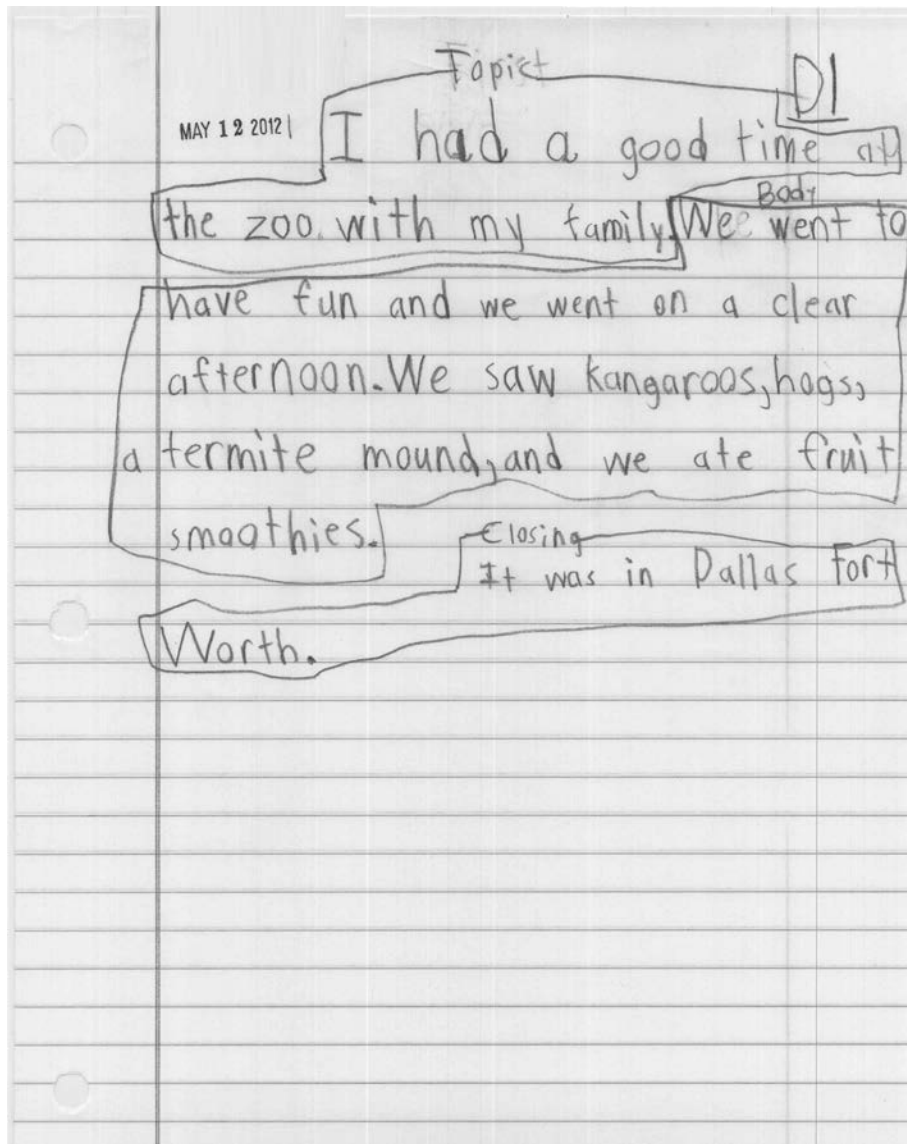 Topict
D1
MAY 12 2012
I had a good time at
the zoo. with my family.
Body
Wee went to
have fun and we went on a clear
afternoon. We saw kangaroos, hogs,
a termite mound, and we ate fruit
smoothies.
Closing
It was in Dallas Fort
Worth.